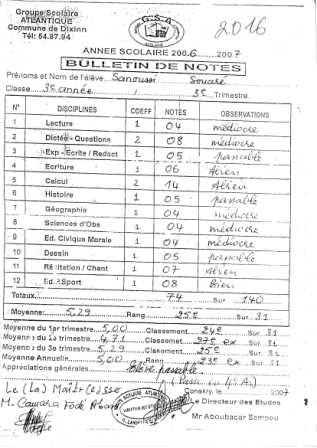 Groupe Scolaire
ATLANTIQUE
Commune de Dixinn
Tél: 54.87.94
G.S.A
2016
ANNEE SCOLAIRE 2006 2007
BULLETIN DE NOTES
Prénoms et Nom de l'élève. Sanoussi Souaré
Classe 3e année 3e Trimestre.
N° DISCIPLINES COEFF NOTES OBSERVATIONS
1 Lecture 1 04 médiocre
2 Dictée - Questions 2 08 médiocre
3 Exp - Ecrite / Redact 1 05 passable
4 Ecriture 1 06 A.bien
5 Calcul 2 14 A.bien
6 Histoire 1 05 passable
7 Géographie 1 04 médiocre
8 Sciences d'Obs 1 04 médiocre
9 Ed. Civique Morale 1 04 médiocre
10 Dessin 1 05 passable
11 Récitation / Chant 1 07 A.bien
12 Ed. Sport 1 08 Bien
Totaux 74 Sur 140
Moyenne: 5,29 Rang 25e Sur 31
Moyenne du 1er trimestre 5,00 Classement 24e Sur 31
Moyenne du 2e trimestre 4,71 Classement 27e ex Sur 31
Moyenne du 3e trimestre 5,29 Classement 25e Sur 31
Moyenne Annuelle 5,00 Rang 23e ex Sur 31
Appréciations générales Elève passable.
Conakry, le 2007
Le (La) Maître(esse Le Directeur des Etudes
M. Camara Fodé Mr Aboubacar Sampou